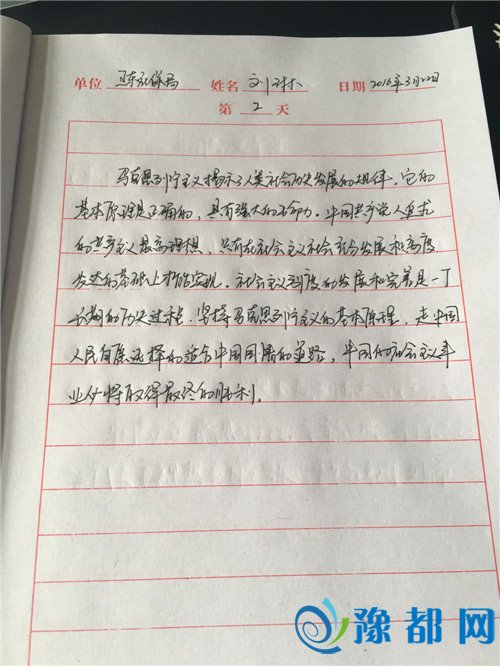 单位 环保局 姓名 刘琳 日期 2016年3月22日
第 2 天
马克思列宁主义揭示了人类社会历史发展的规律，它的
基本原理是正确的，具有强大的生命力。中国共产党人追求
的共产主义最高理想，只有在社会主义社会充分发展和高度
发达的基础上才能实现。社会主义制度的发展和完善是一个
长期的历史过程。坚持马克思列宁主义的基本原理，走中国
人民自愿选择的适合中国国情的道路，中国的社会主义事
业必将取得最终的胜利。
豫都网